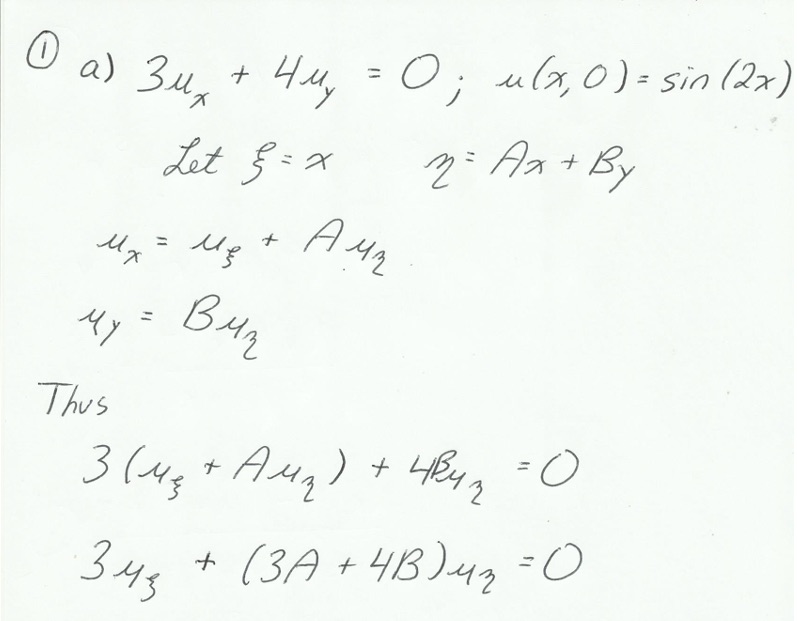 ① a) 3u_x + 4u_y = 0; u(x, 0) = sin(2x)
Let ξ = x η = Ax + By
u_x = u_ξ + Au_η
u_y = Bu_η
Thus
3(u_ξ + Au_η) + 4Bu_η = 0
3u_ξ + (3A + 4B)u_η = 0